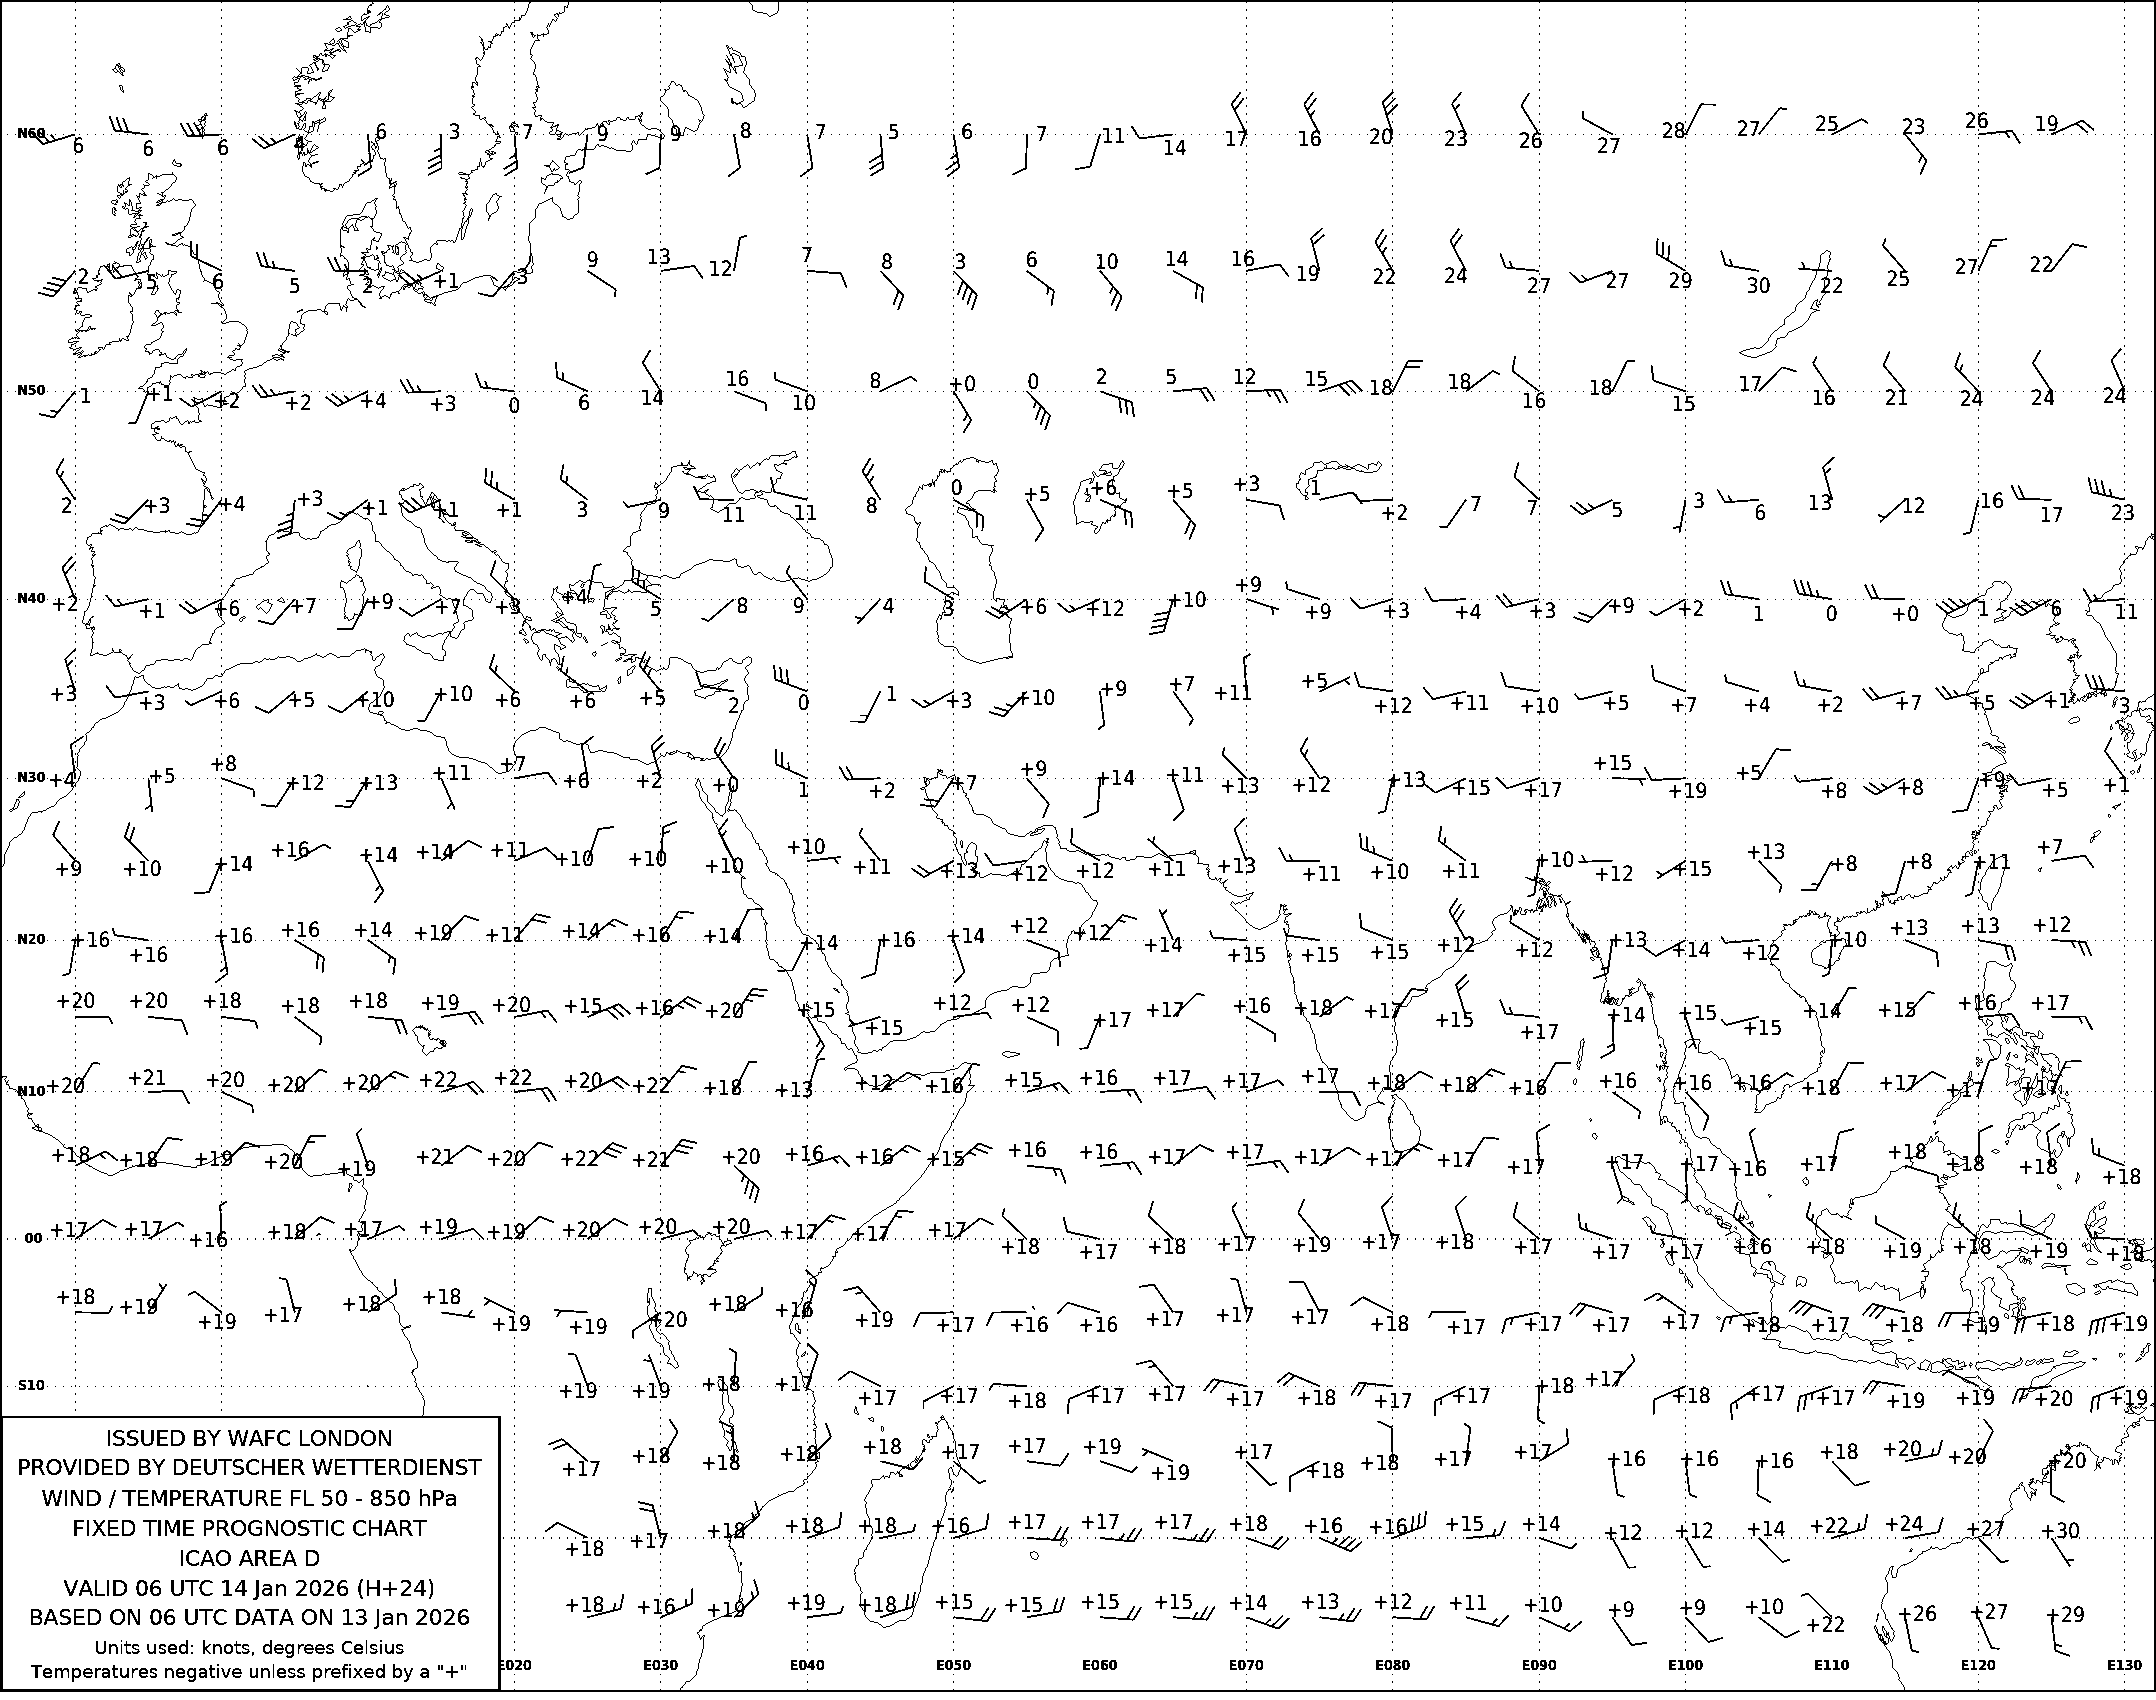 N60 6 6 6 4 6 3 7 9 9 8 7 5 6 7 11 14 17 16 20 23 26 27 28 27 25 23 26 19
2 5 6 5 2 +1 3 9 13 12 7 8 3 6 10 14 16 19 22 24 27 27 29 30 22 25 27 22
N50 1 +1 +2 +2 +4 +3 0 6 14 16 10 8 +0 0 2 5 12 15 18 18 16 18 15 17 16 21 24 24 24
2 +3 +4 +3 +1 +1 +1 3 9 11 11 8 0 +5 +6 +5 +3 1 +2 7 7 5 3 6 13 12 16 17 23
N40 +2 +1 +6 +7 +9 +7 +3 +4 5 8 9 4 3 +6 +12 +10 +9 +9 +3 +4 +3 +9 +2 1 0 +0 1 6 11
+3 +3 +6 +5 +10 +10 +6 +6 +5 2 0 1 +3 +10 +9 +7 +11 +5 +12 +11 +10 +5 +7 +4 +2 +7 +5 +1 3
N30 +4 +5 +8 +12 +13 +11 +7 +6 +2 +0 1 +2 +7 +9 +14 +11 +13 +12 +13 +15 +17 +15 +19 +5 +8 +8 +9 +5 +1
+9 +10 +14 +16 +14 +14 +11 +10 +10 +10 +10 +11 +13 +12 +12 +11 +13 +11 +10 +11 +10 +12 +15 +13 +8 +8 +11 +7
N20 +16 +16 +16 +16 +14 +19 +11 +14 +16 +14 +14 +16 +14 +12 +12 +14 +15 +15 +15 +12 +12 +13 +14 +12 +10 +13 +13 +12
+20 +20 +18 +18 +18 +19 +20 +15 +16 +20 +15 +15 +12 +12 +17 +17 +16 +18 +17 +15 +17 +14 +15 +15 +14 +15 +16 +17
N10 +20 +21 +20 +20 +20 +22 +22 +20 +22 +18 +13 +12 +16 +15 +16 +17 +17 +17 +18 +18 +16 +16 +16 +16 +18 +17 +17 +17
+18 +18 +19 +20 +19 +21 +20 +22 +21 +20 +16 +16 +15 +16 +16 +17 +17 +17 +17 +17 +17 +17 +17 +16 +17 +18 +18 +18 +18
00 +17 +17 +16 +18 +17 +19 +19 +20 +20 +20 +17 +17 +17 +18 +17 +18 +17 +19 +17 +18 +17 +17 +17 +16 +18 +19 +18 +19 +18
+18 +19 +19 +17 +18 +18 +19 +19 +20 +18 +16 +19 +17 +16 +16 +17 +17 +17 +18 +17 +17 +17 +17 +18 +17 +18 +19 +18 +19
S10 +19 +19 +18 +17 +17 +17 +18 +17 +17 +17 +18 +17 +17 +18 +17 +18 +17 +17 +19 +19 +20 +19
+17 +18 +18 +18 +18 +17 +17 +19 +19 +17 +18 +18 +17 +17 +16 +16 +16 +18 +20 +20 +20
+18 +17 +18 +18 +18 +16 +17 +17 +17 +18 +16 +16 +15 +14 +12 +12 +14 +22 +24 +27 +30
+18 +16 +19 +19 +18 +15 +15 +15 +15 +14 +13 +12 +11 +10 +9 +9 +10 +22 +26 +27 +29
E020 E030 E040 E050 E060 E070 E080 E090 E100 E110 E120 E130
ISSUED BY WAFC LONDON
PROVIDED BY DEUTSCHER WETTERDIENST
WIND / TEMPERATURE FL 50 - 850 hPa
FIXED TIME PROGNOSTIC CHART
ICAO AREA D
VALID 06 UTC 14 Jan 2026 (H+24)
BASED ON 06 UTC DATA ON 13 Jan 2026
Units used: knots, degrees Celsius
Temperatures negative unless prefixed by a "+"